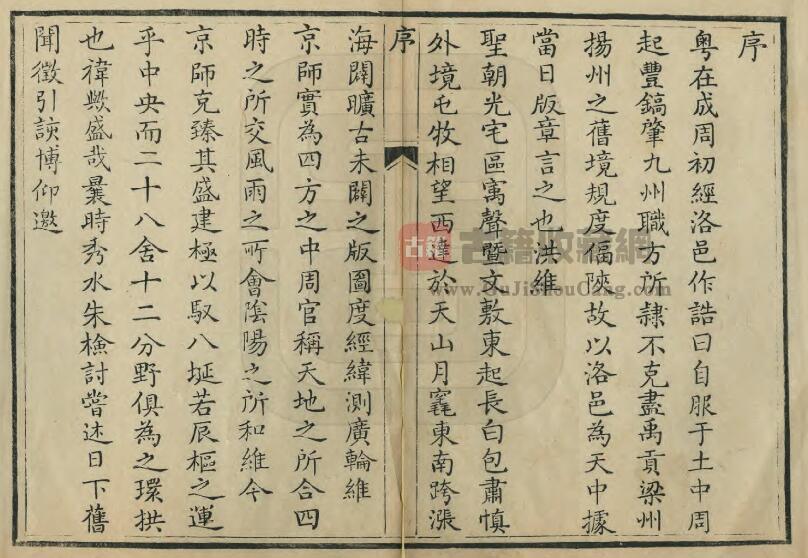 序
粤在成周初經洛邑作誥曰自服于土中周
起豐鎬肇九州職方所隷不克盡禹貢梁州
揚州之舊境規度偪陜故以洛邑為天中據
當日版章言之也洪維
聖朝光宅區寓聲暨文敷東起長白包肅慎
外境屯牧相望西達於天山月竁東南跨漲
序
海闢曠古未闢之版圖度經緯測廣輪維
京師實為四方之中周官稱天地之所合四
時之所交風雨之所會陰陽之所和維今
京師克臻其盛建極以馭八埏若辰樞之運
乎中央而二十八舍十二分野俱為之環拱
也禕歟盛哉曩時秀水朱檢討嘗述日下舊
聞徵引該博仰邀
古籍
古籍收藏網
www.GuJiShouCang.com